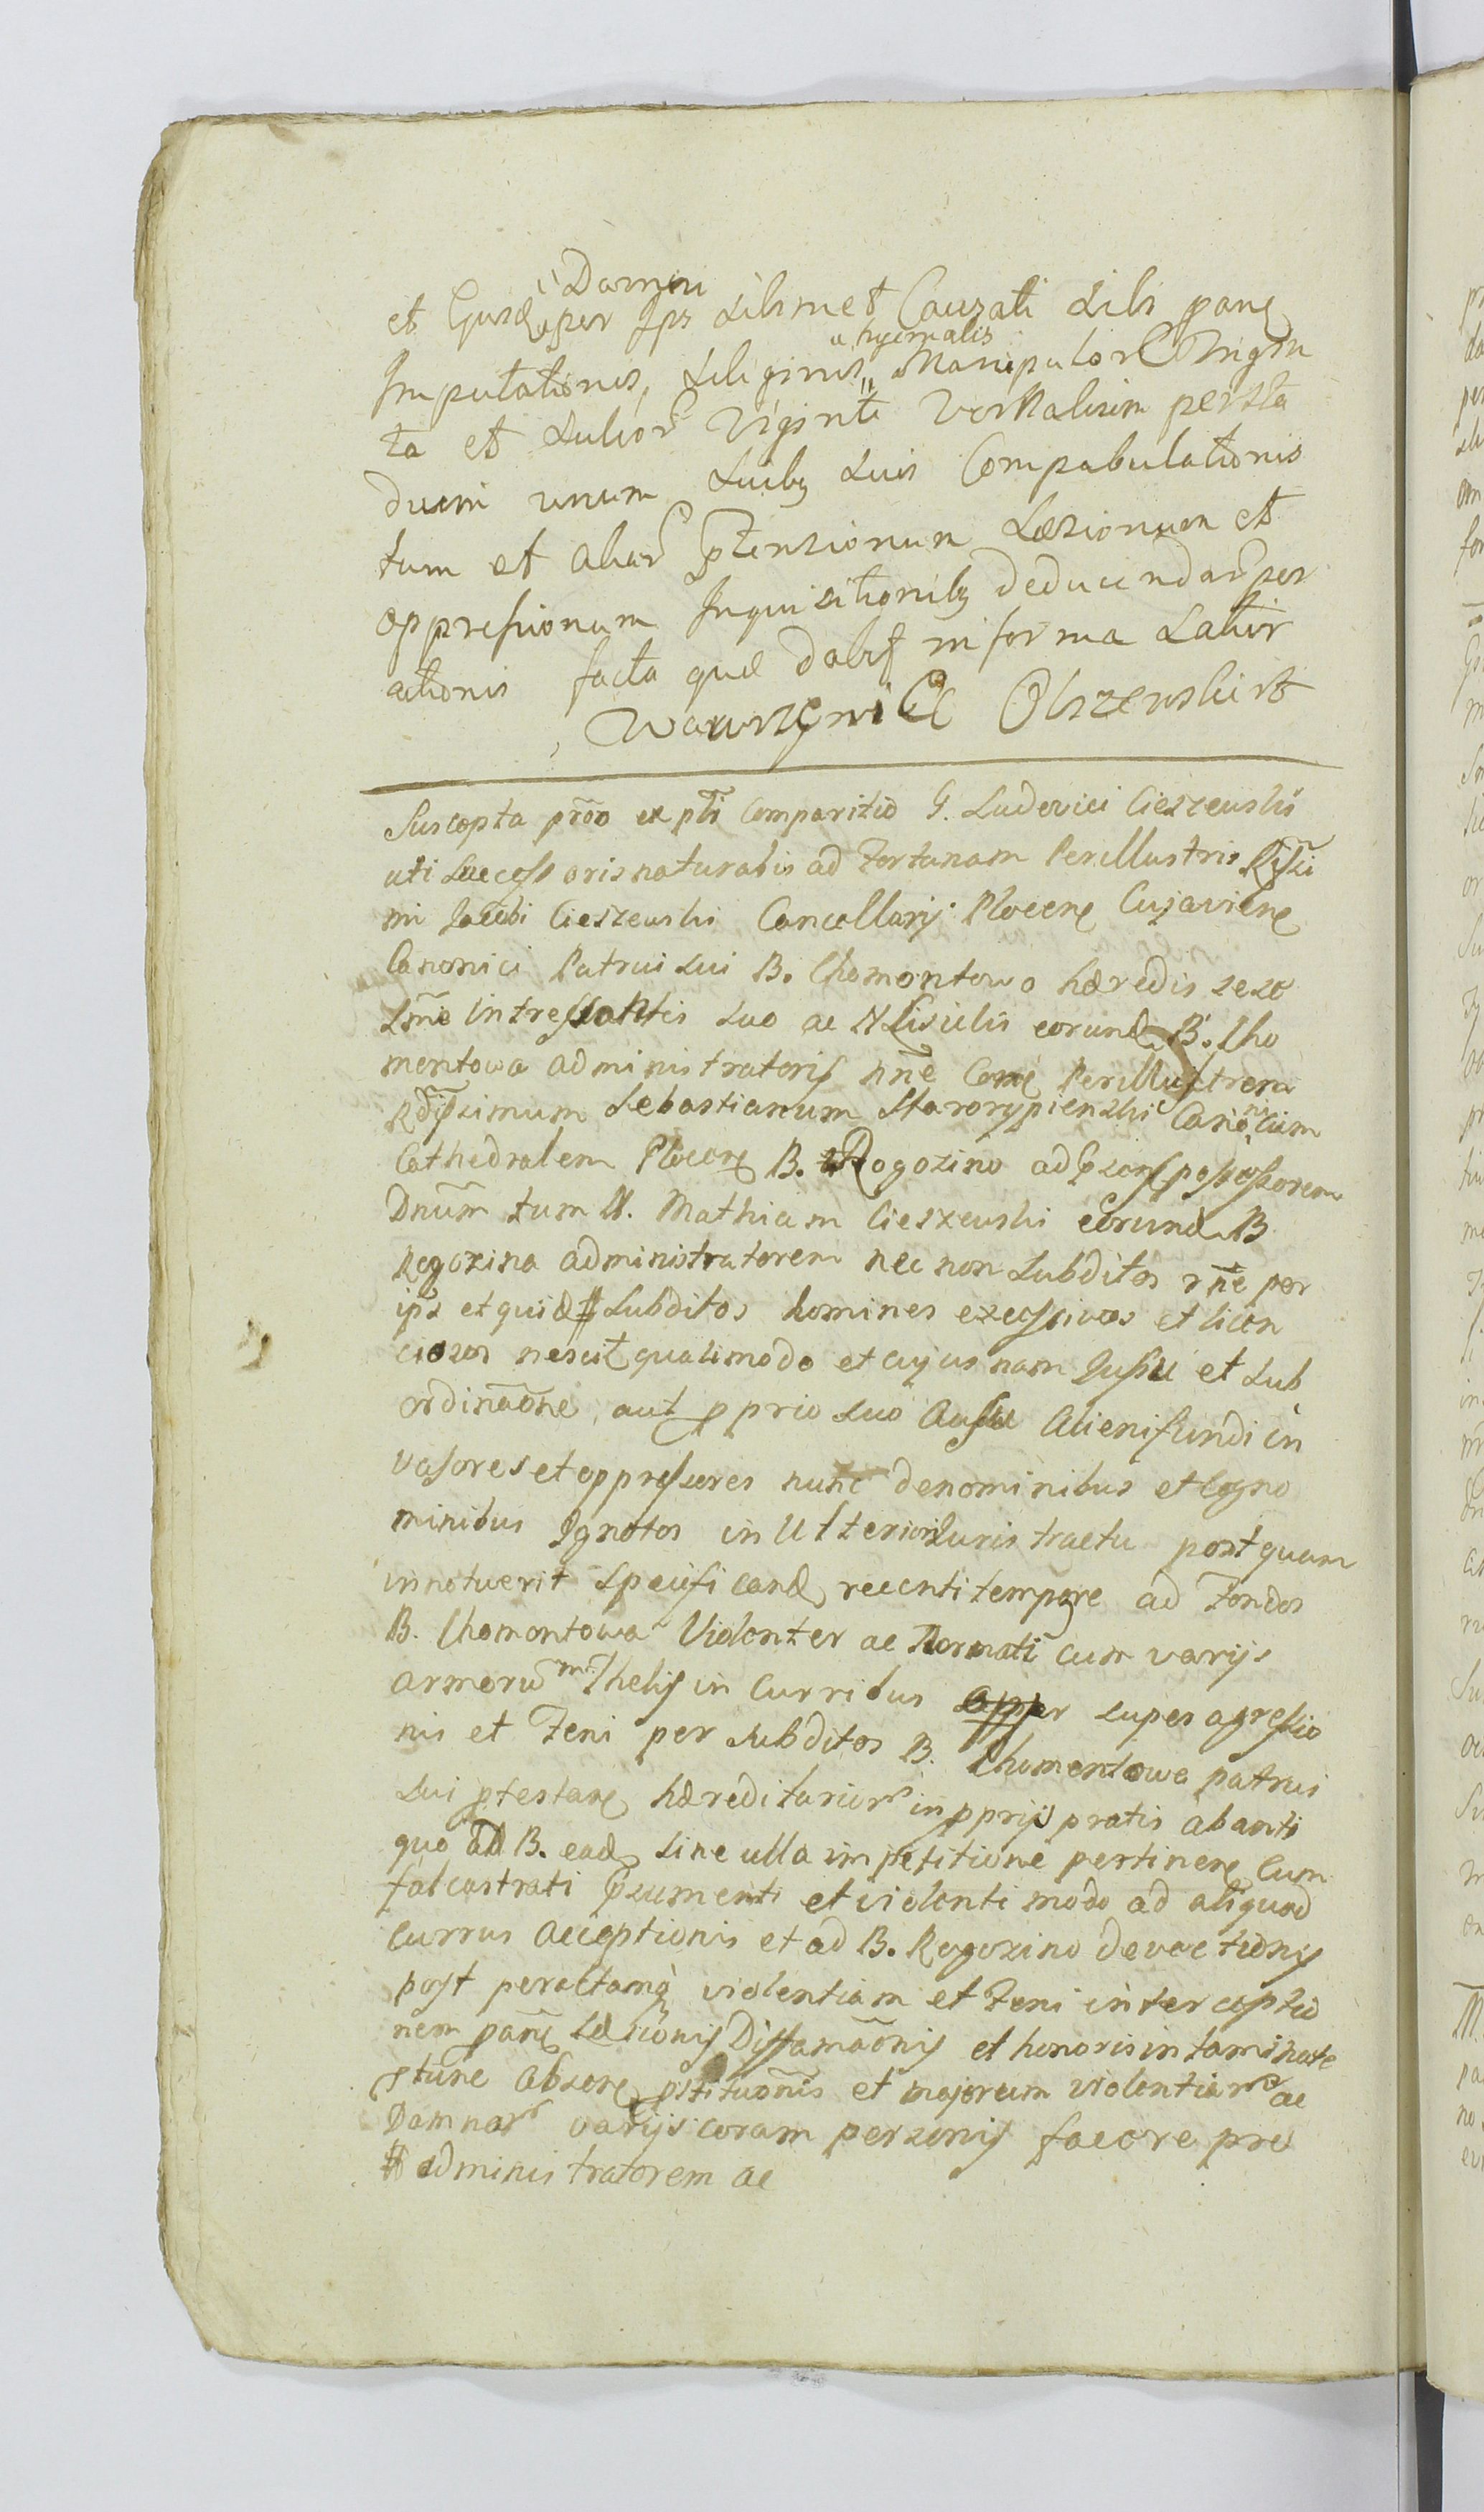 Damni
et Ejusd. per Ips Sibimet Causati Sibi pane
a hyemalis
Imputationis, Siliginis Manipulor Trigin
ta et Sulcor Viginti Vernalium persta
dueni unum Suibq Suis Compabulationis
tum et aliar ptensionum Læsionum et
oppressionum Inquisitionibq deducendar per
actionis facta quæ dabit in forma Latior
Wawrzyniec Olszewski
Suscepta proo ex pti Comparitio G. Ludovici Cieszewski
uti Successoris naturalis ad Fortunam Perillustris Rssi
mi Jacobi Cieszewski Cancellarij Plocenę Cujavienę
Canonici Patrui sui B. Chomontowo hæredis sese
Intressantis suo ac N eorund. B. Cho
montowa administratoris nne Cone Perillustrem
Rdissimum Sebastianum Starorypienski Canonicum
Cathedralem Plocenę B. Rogozino possessorem
Dnum tum N. Mathiam Cieszewski eorund. B
Rogozina administratorem nec non Subditos rne per
ips et quid # Subditos homines excessivos et licen
ciosos nescit qualimodo et cujusnam Jussu et sub
ordinaone, aut pprio suo Ausu Alieni fundi in
vasores et oppressores nunc denominibus et Cogno
minibus Ignotos in Ulteriori Juris tractu postquam
innotuerit Specificand. recenti tempore ad Fondos
B. Chomontowa Violenter ac Armati cum varijs
armoru Thelis in Curribus super agressio
nis et Feni per Subditos B. Chomontowa patrui
sui ptestanę hæreditarior in pprijs pratis abanti
quo ad B. ead. sine ulla impetitione pertinenę Cum
falcastrati et violenti modo ad aliquod
currus acceptionis et ad B. Rogozino devectionis
post peractamq violentiam et Feni interceptio
nem panę Læsionis Diffamaonis et honoris intaminate
stune absenę pstituonis et majorum violentiar ac
Damnar varijs coram personis facere pre
# administratorem ac